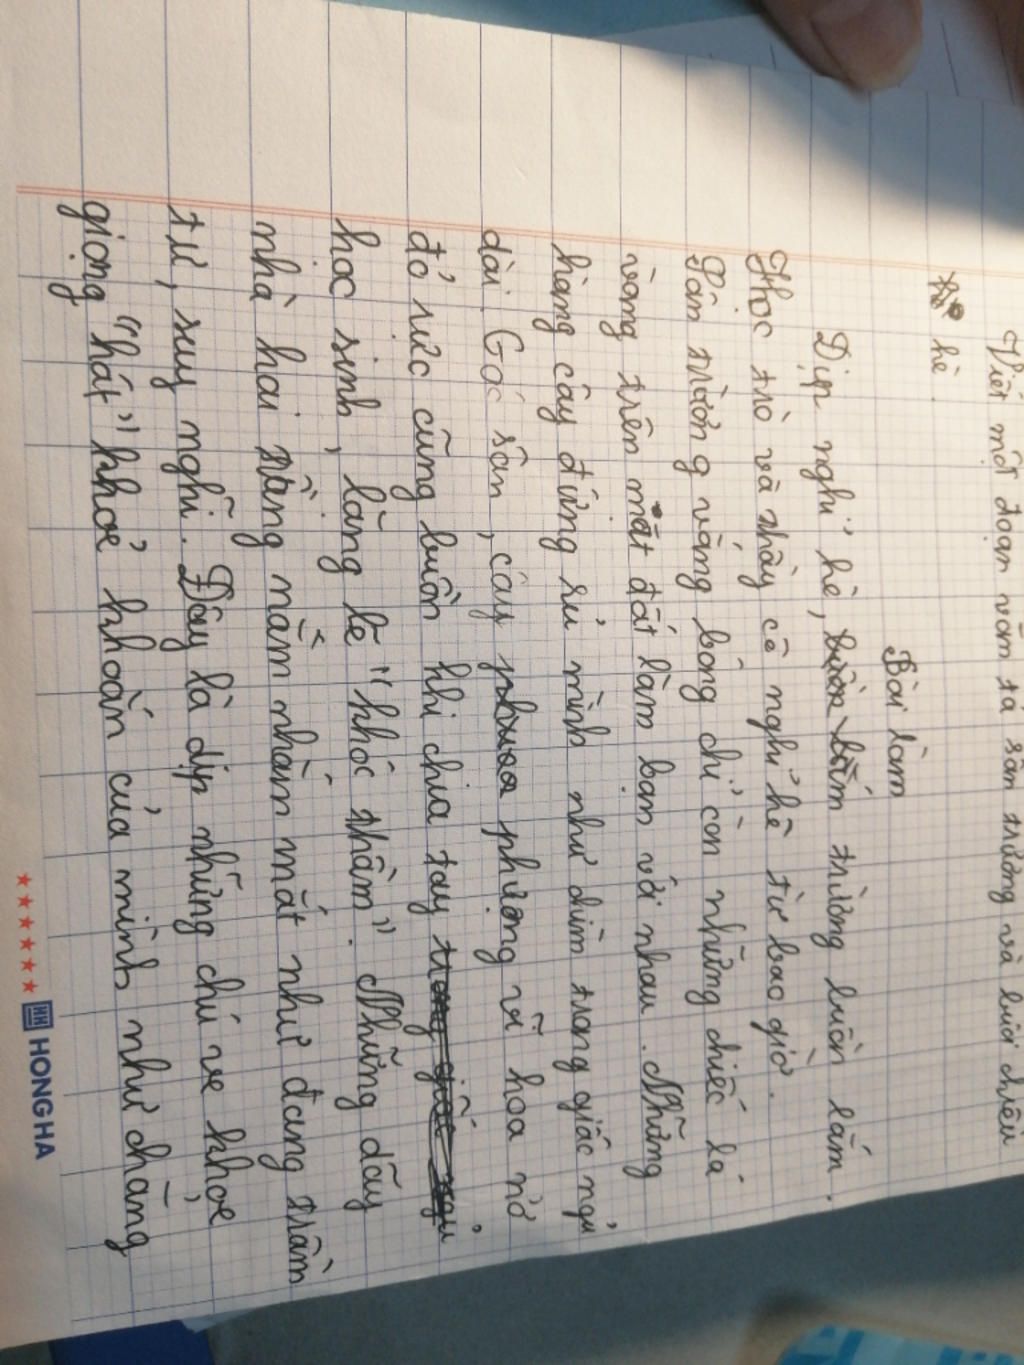 Viết một đoạn văn tả sân trường và buổi chiều
hè.
Bài làm
Dịp nghỉ hè, trường buồn lắm.
Học trò và thầy cô nghỉ hè từ bao giờ.
Sân trường vắng bóng chỉ còn những chiếc lá
vàng trên mặt đất làm bạn với nhau. Những
hàng cây đứng rủ mình như chìm trong giấc ngủ
dài. Góc sân, cây phượng vĩ hoa nở
đỏ rực cũng buồn khi chia tay
học sinh, lặng lẽ "khóc thầm". Những dãy
nhà hai tầng nằm nhắm mắt như đang trầm
tư, suy nghĩ. Đây là dịp những chú ve khỏe
giọng "hát" khỏe khoắn của mình như chàng
HONG HA